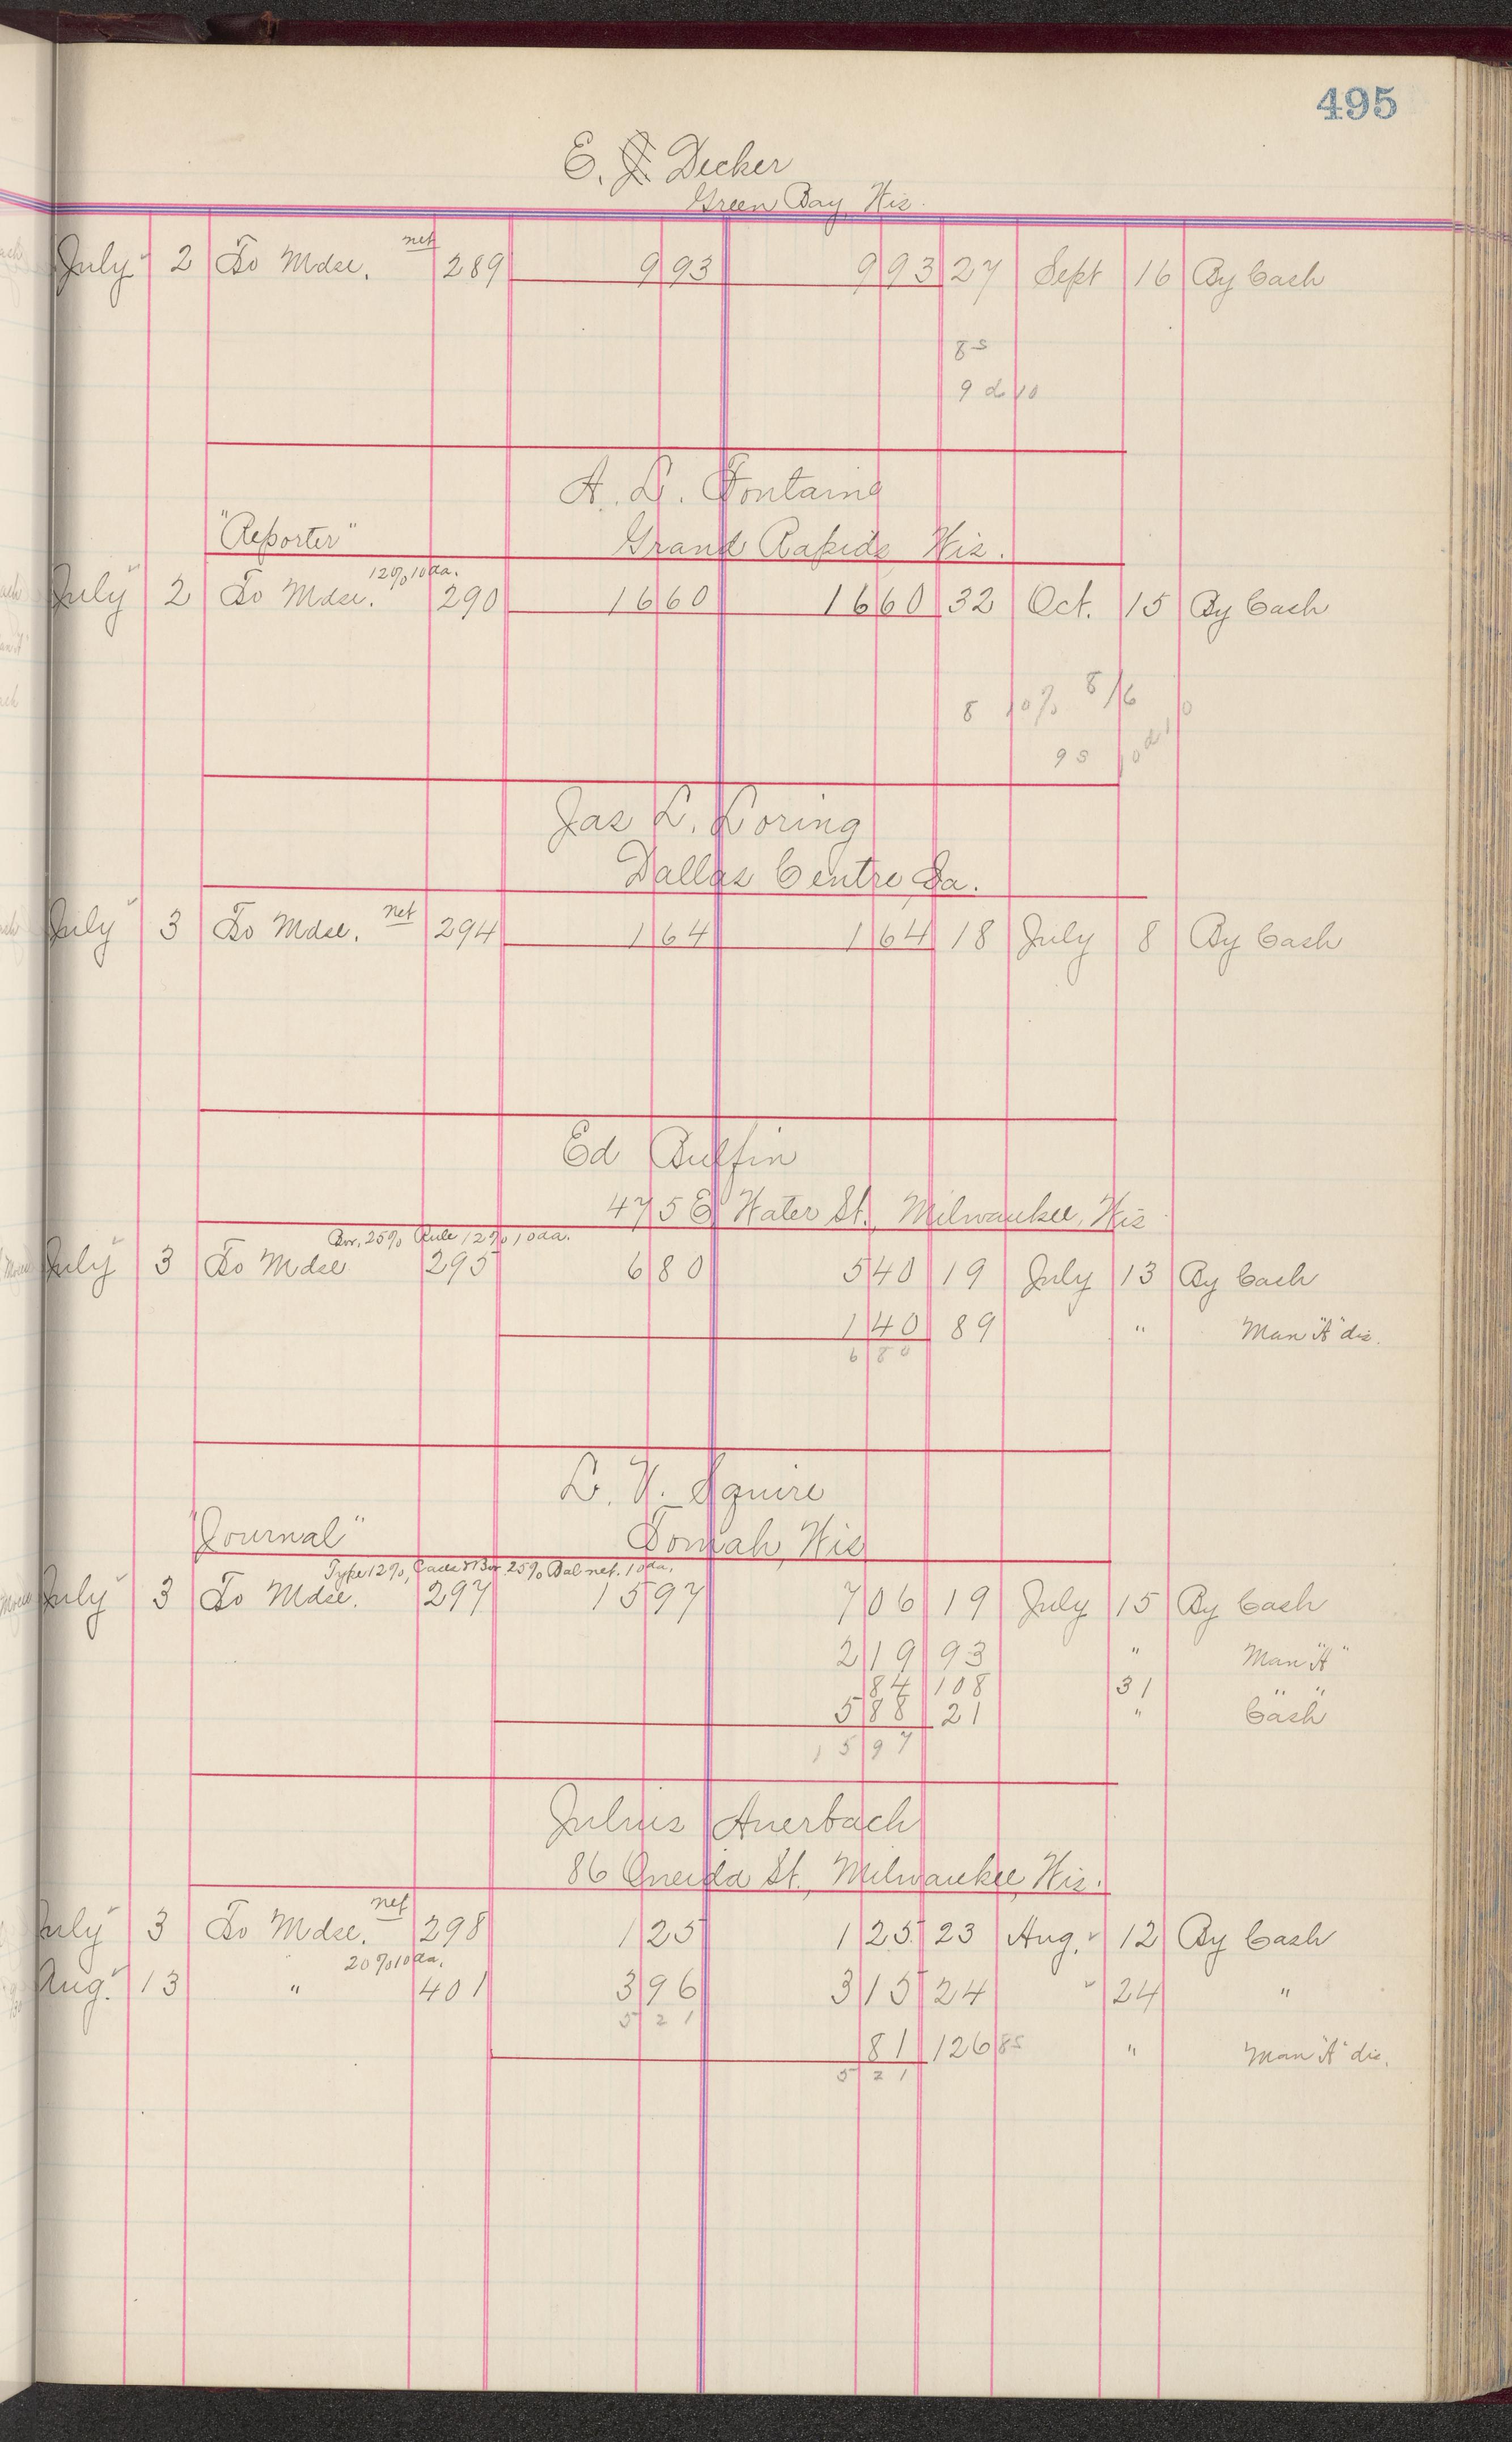 495
E. J. Decker
Green Bay, Wis.
July 2 To Mdse. net 289 9 93 9 93 27 Sept 16 By Cash
8 s
9 d 10
A. L. Fontaine
"Reporter" Grand Rapids Wis.
12% 10 da.
July 2 To Mdse. 290 16 60 16 60 32 Oct. 15 By Cash
8 10% 8/6
9 s 10 d 10
Jas L. Loring
Dallas Centre, Ia.
July 3 To Mdse. net 294 1 64 1 64 18 July 8 By Cash
Ed Bulfin
475 E Water St., Milwaukee, Wis
Bor. 25% Rule 12% 10 da.
July 3 To Mdse 295 6 80 5 40 19 July 13 By Cash
1 40 89 " Man "A" dis.
6 80
L. W. Squire
"Journal" Tomah, Wis
Type 12%, Cases & Bor. 25% Bal net. 10 da.
July 3 To Mdse. 297 15 97 7 06 19 July 15 By Cash
2 19 93 " Man "A"
84 108 31 " "
5 88 21 " Cash
15 97
Julius Auerbach
86 Oneida St., Milwaukee, Wis.
July 3 To Mdse. net 298 1 25 1 25 23 Aug. 12 By Cash
20% 10 da.
Aug. 13 " 401 3 96 3 15 24 " 24 "
5 21
81 126 85 " Man "A" dis.
5 21